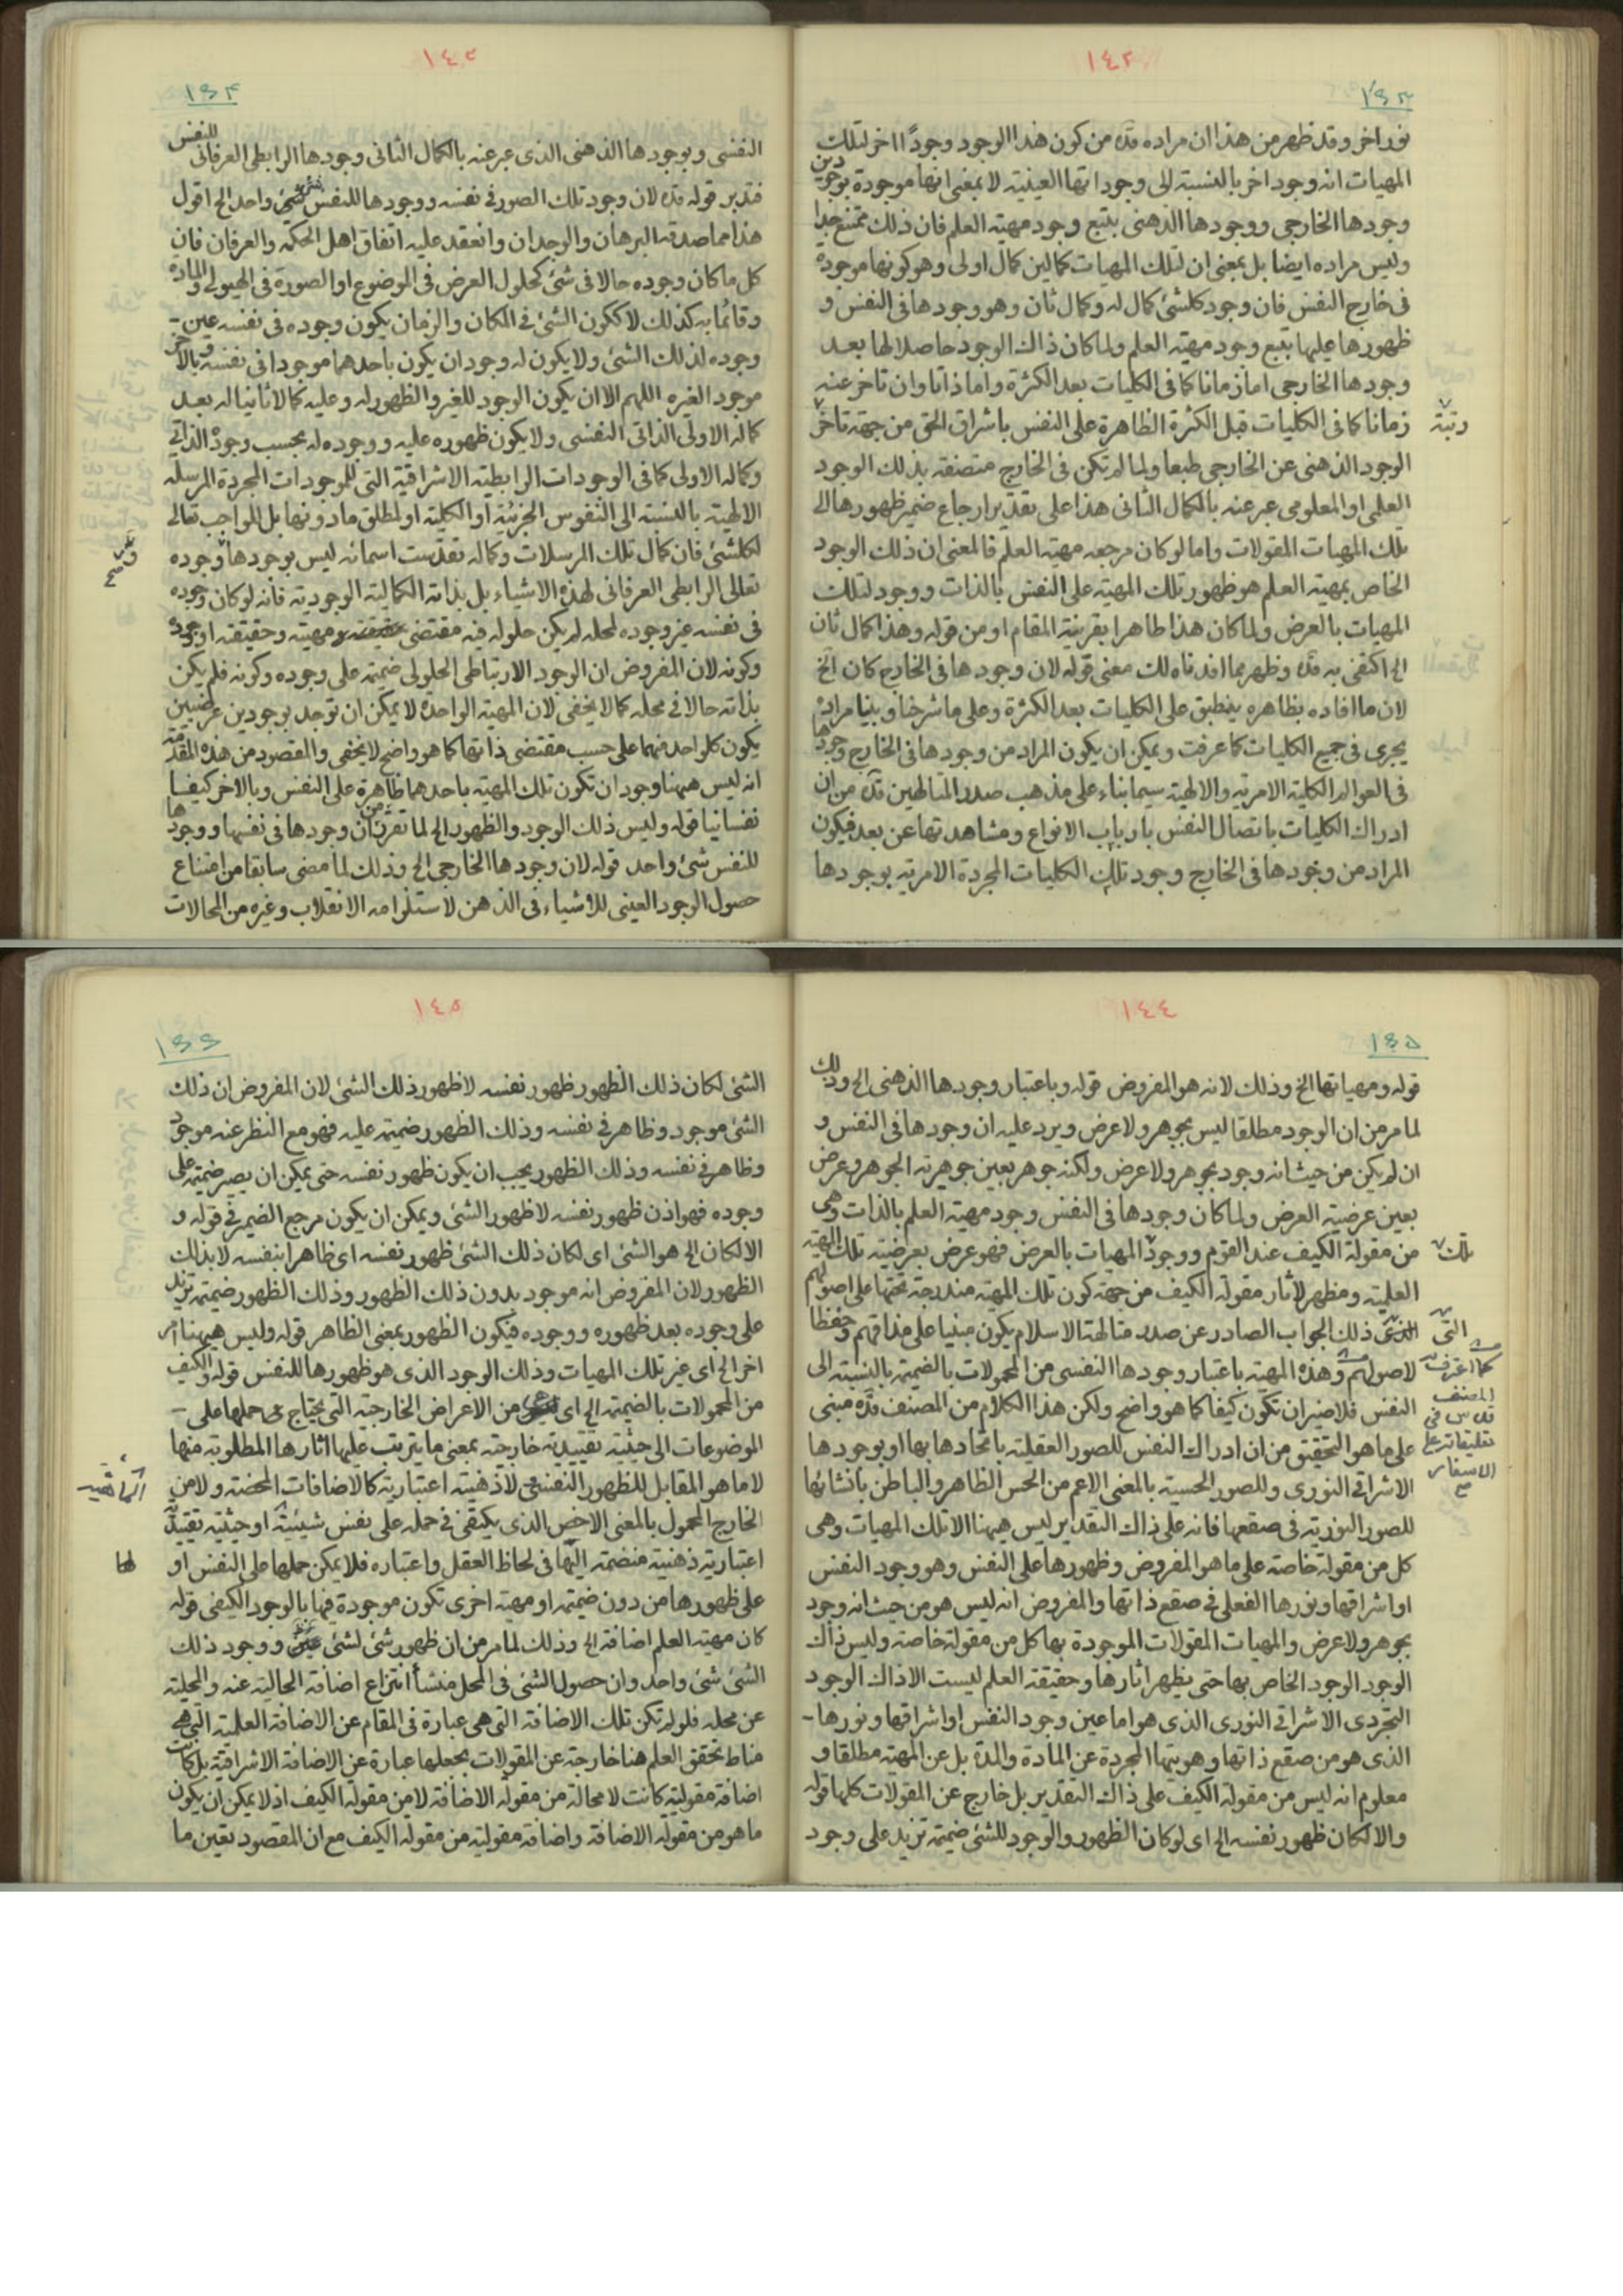 ١٤٢
١٤٣
نور اخر و قد ظهر من هذا ان مراده قده من كون هذا الوجود وجودًا اخر لتلك
المهيات انه وجود اخر بالنسبة الى وجوداتها العينية لا بمعنى انها موجودة بوجودين
وجودها الخارجى ووجودها الذهنى بتبع وجود مهية العلم فان ذلك ممتنع جدا
وليس مراده ايضا بل بمعنى ان لتلك المهيات كمالين كمال اولى وهو كونها موجودة
فى خارج النفس فان وجود كلشئ كمال له وكمال ثان وهو وجودها فى النفس و
ظهورها عليها بتبع وجود مهية العلم ولما كان ذاك الوجود حاصلا لها بعد
وجودها الخارجى اما زمانا كما فى الكليات بعد الكثرة واما ذاتا وان تاخر عنه
زمانا كما فى الكليات قبل الكثرة الظاهرة على النفس باشراق الحق من جهة تاخر
رتبة
الوجود الذهنى عن الخارجى طبعا ولما لم تكن فى الخارج متصفة بذلك الوجود
العلمى او المعلومى عبر عنه بالكمال الثانى هذا على تقدير ارجاع ضمير ظهورها الى
تلك المهيات المقولات واما لو كان مرجعه مهية العلم فالمعنى ان ذلك الوجود
الخاص بمهية العلم هو ظهور تلك المهية على النفس بالذات ووجود لتلك
المهيات بالعرض ولما كان هذا ظاهرا بقرينة المقام او من قوله وهذا كمال ثان
الخ اكتفى به قده وظهر بما افدناه لك معنى قوله لان وجودها فى الخارج كان الخ
لان ما افاده بظاهره ينطبق على الكليات بعد الكثرة وعلى ما شرحنا وبينا مراده
يجرى فى جميع الكليات كما عرفت ويمكن ان يكون المراد من وجودها فى الخارج وجودها
فى العوالم الكلية الامرية والالهية سيما بناء على مذهب صدر المتالهين قده من ان
ادراك الكليات باتصال النفس بارباب الانواع ومشاهدتها عن بعد فيكون
المراد من وجودها فى الخارج وجود تلك الكليات المجردة الامرية بوجودها
النفسى وبوجودها الذهنى الذى عبر عنه بالكمال الثانى وجودها الرابطى العرفانى للنفس
فتدبر قوله قده لان وجود تلك الصور فى نفسه ووجودها للنفس شئ واحد الخ اقول
هذا مما صدقه البرهان والوجدان وانعقد عليه اتفاق اهل الحكمة والعرفان فان
كل ما كان وجوده حالا فى شئ كحلول العرض فى الموضوع او الصورة فى الهيولى والمادة
وقائما به كذلك لا ككون الشئ فى المكان والزمان يكون وجوده فى نفسه عين -
وجوده لذلك الشئ ولا يكون له وجود ان يكون باحدهما موجودا فى نفسه وبالاخر
موجود الغيره اللهم الا ان يكون الوجود للغير والظهور له وعليه كمالا ثانيا له بعد
كماله الاولى الذاتى النفسى ولا يكون ظهوره عليه ووجوده له بحسب وجوده الذاتى
وكماله الاولى كما فى الوجودات الرابطية الاشراقية التى للموجودات المجردة المرسلة
الالهية بالنسبة الى النفوس الجزئية او الكلية او لمطلق ما دونها بل للواجب تعالى
لكلشئ فان كمال تلك المرسلات وكماله تقدست اسمائه ليس بوجودها ووجوده
تعالى الرابطى العرفانى لهذه الاشياء بل بذاته الكمالية الوجودية فانه لو كان وجوده
فى نفسه غير وجوده لمحله لم يكن حلوله فيه مقتضى مهيته وحقيقته او وجوده
وكونه لان المفروض ان الوجود الارتباطى الحلولى ضميمة على وجوده وكونه فلم يكن
بذاته حالا فى محله كما لا يخفى لان المهية الواحدة لا يمكن ان توجد بوجودين عرضيين
يكون كلواحد منهما على حسب مقتضى ذاتها كما هو واضح لا يخفى والمقصود من هذه المقدمة
انه ليس ههنا وجود ان تكون تلك المهية باحدهما ظاهرة على النفس وبالاخر كيفا
نفسانيا قوله وليس ذلك الوجود والظهور الخ لما تقرر من ان وجودها فى نفسها ووجودها
للنفس شئ واحد قوله لان وجودها الخارجى الخ وذلك لما مضى سابقا من امتناع
حصول الوجود العينى للاشياء فى الذهن لاستلزامه الانقلاب وغيره من المحالات
١٤٤
١٤٥
قوله ومهياتها الخ وذلك لانه هو المفروض قوله وباعتبار وجودها الذهنى الخ وذلك
لما مر من ان الوجود مطلقا ليس بجوهر ولا عرض ويرد عليه ان وجودها فى النفس و
ان لم يكن من حيث انه وجود بجوهر ولا عرض ولكنه جوهر بعين جوهرية الجوهر وعرض
بعين عرضية العرض ولما كان وجودها فى النفس وجود مهية العلم بالذات وهى
من مقولة الكيف عند القوم ووجود تلك المهيات بالعرض فهو عرض بعرضية تلك المهية
العلمية ومظهر لاثار مقولة الكيف من جهة كون تلك المهية مندرجة تحتها على اصولهم
التى ذلك الجواب الصادر عن صدر متالهة الاسلام يكون مبنيا على مذاقهم وحفظا
لاصولهم وهذه المهية باعتبار وجودها النفسى من المحمولات بالضميمة بالنسبة الى
كما اعترف به المصنف قدس فى تعليقاته على الاسفار
النفس فلا ضير ان تكون كيفا كما هو واضح ولكن هذا الكلام من المصنف قده مبنى
على ما هو التحقيق من ان ادراك النفس للصور العقلية باتحادها بها او بوجودها
الاشراقى النورى وللصور الحسية بالمعنى الاعم من الحس الظاهر والباطن بانشائها
للصور النورية فى صقعها فانه على ذاك التقدير ليس ههنا الا تلك المهيات وهى
كل من مقولة خاصة على ما هو المفروض وظهورها على النفس وهو وجود النفس
او اشراقها ونورها الفعلى فى صقع ذاتها والمفروض انه ليس هو من حيث انه وجود
بجوهر ولا عرض والمهيات المقولات الموجودة بها كل من مقولة خاصة وليس ذاك
الوجود الوجود الخاص بها حتى يظهر اثارها وحقيقة العلم ليست الا ذاك الوجود
التجردى الاشراقى النورى الذى هو اما عين وجود النفس او اشراقها ونورها -
الذى هو من صقع ذاتها وهويتها المجردة عن المادة والمدة بل عن المهية مطلقا و
معلوم انه ليس من مقولة الكيف على ذاك التقدير بل خارج عن المقولات كلها قوله
والا لكان ظهور نفسه الخ اى لو كان الظهور والوجود للشئ ضميمة تزيد على وجود
الشئ لكان ذلك الظهور ظهور نفسه لا ظهور ذلك الشئ لان المفروض ان ذلك
الشئ موجود وظاهر فى نفسه وذلك الظهور ضميمة عليه فهو مع النظر عنه موجود
وظاهر فى نفسه وذلك الظهور يجب ان يكون ظهور نفسه حتى يمكن ان يصير ضميمة على
وجوده فهو اذن ظهور نفسه لا ظهور الشئ ويمكن ان يكون مرجع الضمير فى قوله و
الا لكان الخ هو الشئ اى لكان ذلك الشئ ظهور نفسه اى ظاهرا بنفسه لا بذلك
الظهور لان المفروض انه موجود بدون ذلك الظهور وذلك الظهور ضميمة تزيد
على وجوده بعد ظهوره ووجوده فيكون الظهور بمعنى الظاهر قوله وليس هيهنا امر
اخر الخ اى غير تلك المهيات وذلك الوجود الذى هو ظهورها للنفس قوله والكيف
من المحمولات بالضميمة الخ اى من الاعراض الخارجية التى يحتاج فى حملها على -
الموضوعات الى حيثية تقييدية خارجية بمعنى ما يترتب عليها اثارها المطلوبة منها
لا ما هو المقابل للظهور النفسى لا ذهنية اعتبارية كالاضافات المحضة ولا من
الخارج المحمول بالمعنى الاخص الذى يكتفى فى حمله على نفس شيئية او حيثية تقييدية
اعتبارية ذهنية منضمة اليها فى لحاظ العقل واعتباره فلا يمكن حملها على النفس او
لها
على ظهورها من دون ضميمة او مهية اخرى تكون موجودة فيها بالوجود الكيفى قوله
كان مهية العلم اضافة الخ وذلك لما مر من ان ظهور شئ لشئ ووجود ذلك
الشئ شئ واحد وان حصول الشئ فى المحل منشأ انتزاع اضافة الحالية عنه والمحلية
عن محله فلو لم تكن تلك الاضافة التى هى عبارة فى المقام عن الاضافة العلمية التى هى
مناط تحقق العلم هنا خارجة عن المقولات بجعلها عبارة عن الاضافة الاشراقية بل كانت
اضافة مقولية كانت لا محالة من مقولة الاضافة لا من مقولة الكيف اذ لا يمكن ان يكون
ما هو من مقولة الاضافة واضافة مقولية من مقولة الكيف مع ان المقصود تعيين ما